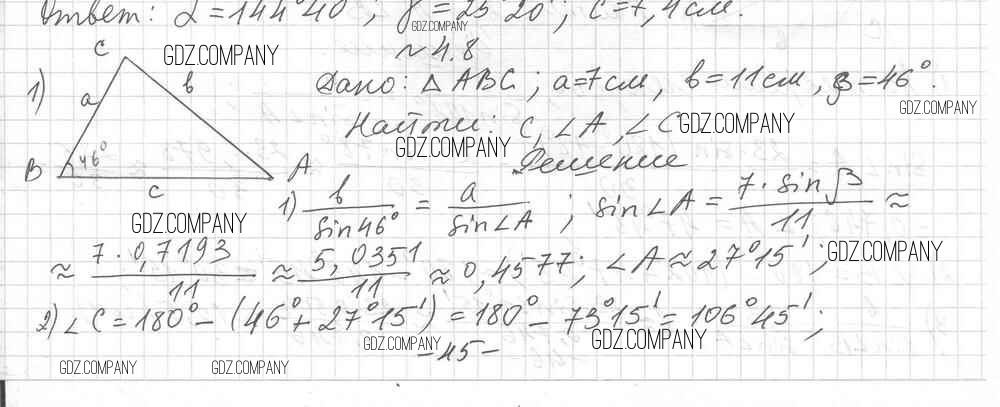 Ответ: α = 144°40'; γ = 25°20'; c = 7,4 см.
GDZ.COMPANY
~ 4.8
GDZ.COMPANY
C
1)
a
b
B
46°
A
c
GDZ.COMPANY
Дано: △ ABC; a=7 см, b=11 см, β=46°.
GDZ.COMPANY
Найти: c, ∠A, ∠C
GDZ.COMPANY
GDZ.COMPANY
Решение
1) b/sin46° = a/sin∠A; sin∠A = 7·sinβ/11 ≈
≈ 7·0,7193/11 ≈ 5,0351/11 ≈ 0,4577; ∠A ≈ 27°15';
GDZ.COMPANY
2) ∠C = 180° − (46° + 27°15') = 180° − 73°15' = 106°45';
GDZ.COMPANY
GDZ.COMPANY
-45-
GDZ.COMPANY
GDZ.COMPANY